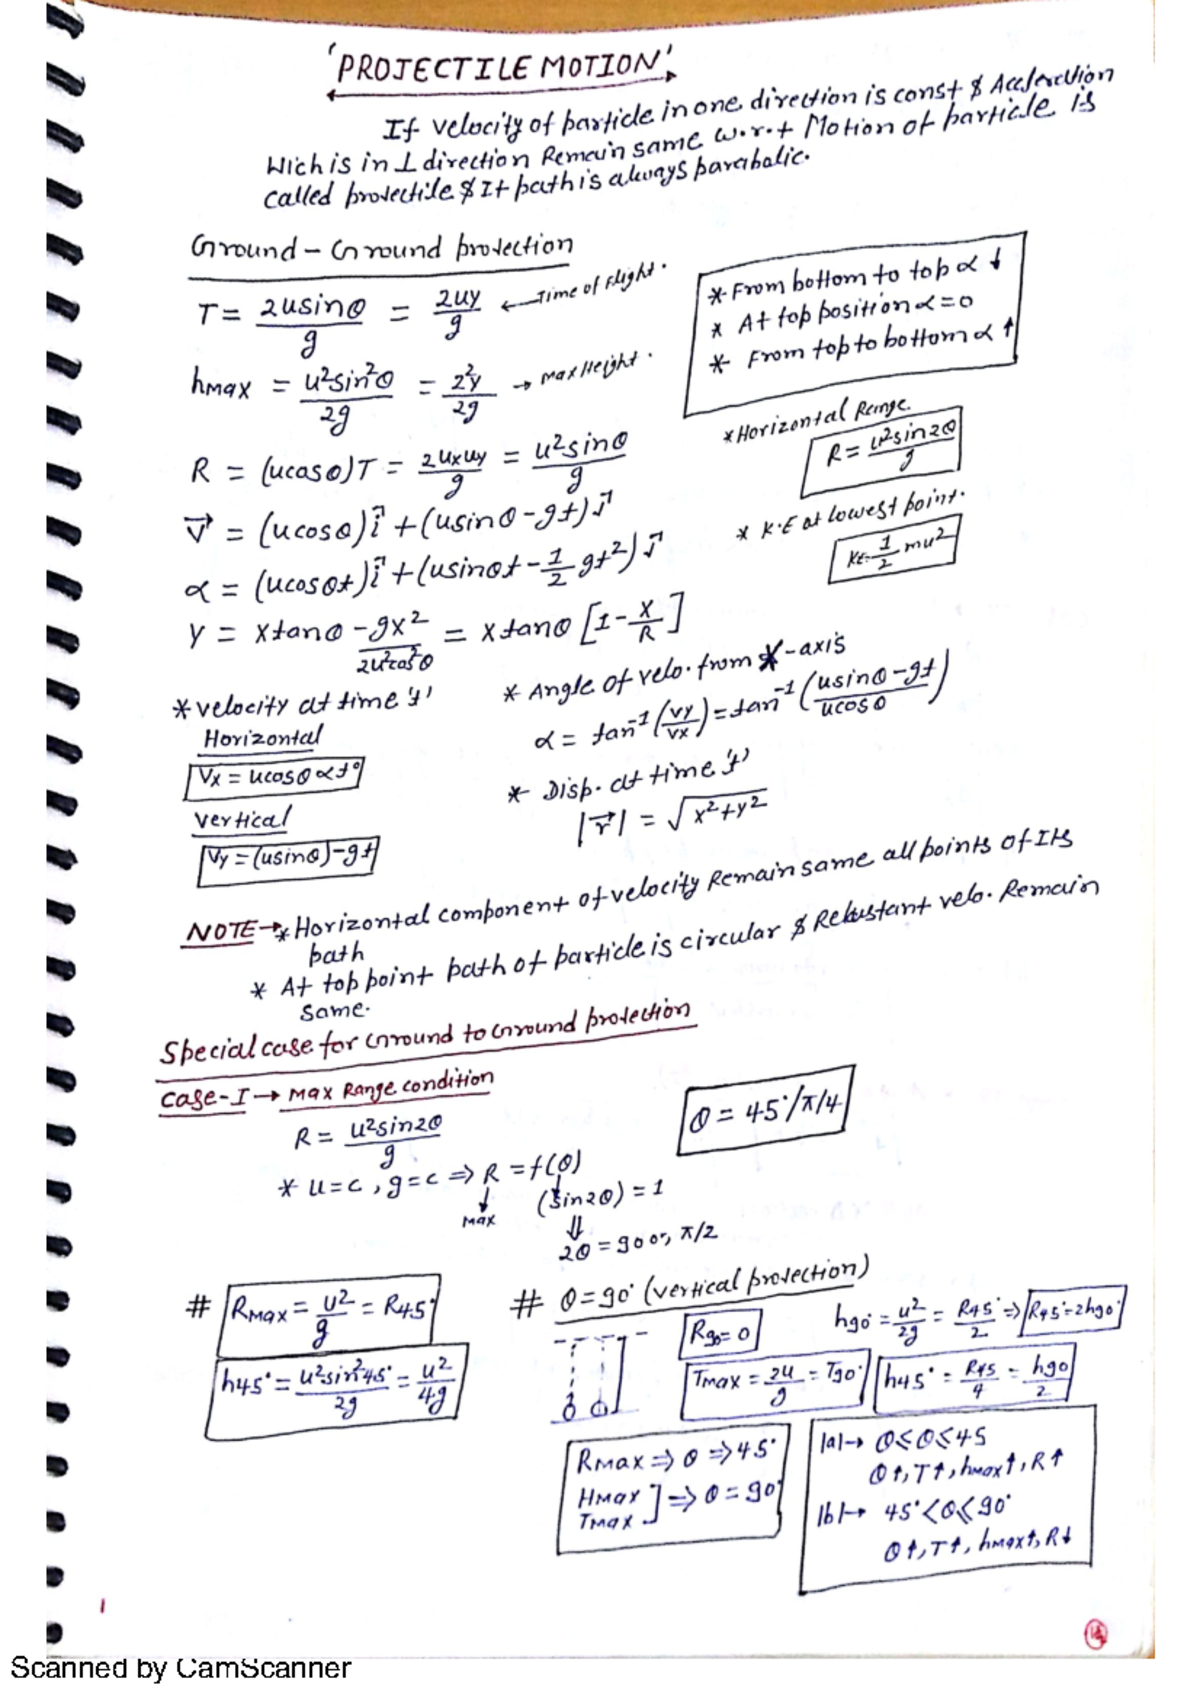 'PROJECTILE MOTION'
If velocity of particle in one direction is const & Accleration
Wich is in ⊥ direction Remain same w.r.t Motion of particle is
called projectile & It path is always parabolic.
Ground - Ground projection
T = 2usinθ/g = 2uy/g ← Time of Flight.
hmax = u²sin²θ/2g = 2²y/2g → Max Height.
* From bottom to top α ↓
* At top position α = 0
* From top to bottom α ↑
R = (ucosθ)T = 2uxuy/g = u²sinθ/g
* Horizontal Range.
R = u²sin2θ/g
V⃗ = (ucosθ)î + (usinθ - gt)ĵ
* K.E at lowest point.
KE = 1/2 mu²
α = (ucosθt)î + (usinθt - 1/2 gt²)ĵ
y = xtanθ - gx²/2u²cos²θ = xtanθ [1 - x/R]
* velocity at time 't'
Horizontal
Vx = ucosθ α t°
Vertical
Vy = (usinθ) - gt
* Angle of velo. from X-axis
α = tan⁻¹(vy/vx) = tan⁻¹(usinθ - gt/ucosθ)
* Disp. at time 't'
|r⃗| = √x² + y²
NOTE → * Horizontal component of velocity Remain same all points of Its
path
* At top point path of particle is circular & velo. Remain
same.
Special case for Ground to Ground projection
Case-I → Max Range condition
R = u²sin2θ/g
θ = 45°/π/4
* u = c, g = c ⇒ R = f(θ)
↓ ↓
Max (sin2θ) = 1
⇓
2θ = 90 or, π/2
# RMax = u²/g = R45°
h45° = u²sin²45°/2g = u²/4g
# θ = 90° (vertical projection)
R90 = 0
h90° = u²/2g = R45°/2 ⇒ R45° = 2h90°
Tmax = 2u/g = T90°
h45° = R45/4 = h90/2
RMax ⇒ θ ⇒ 45°
HMax
TMax ] ⇒ θ = 90°
|a| → 0 ≤ θ ≤ 45
θ↑, T↑, hmax↑, R↑
|b| → 45° < θ ≤ 90°
θ↑, T↑, hmax↑, R↓
1
Scanned by CamScanner